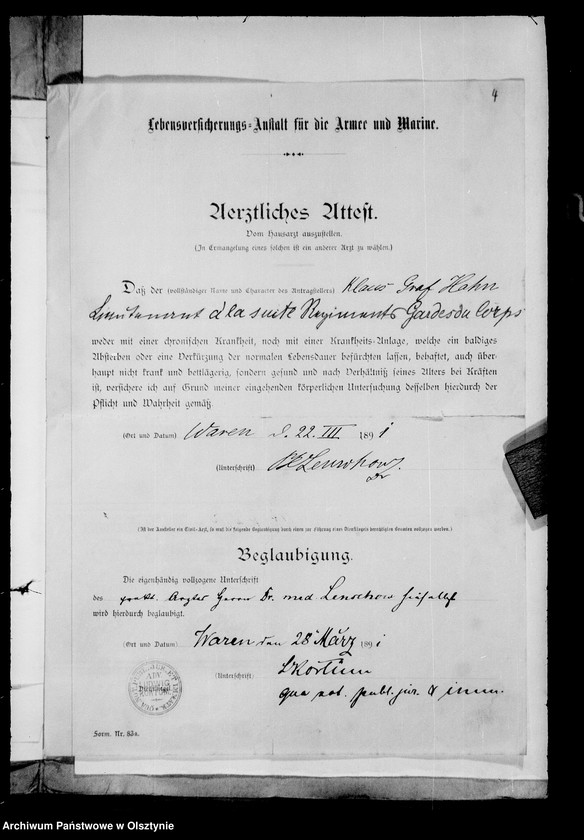 4
Lebensversicherungs-Anstalt für die Armee und Marine.
Aerztliches Attest.
Vom Hausarzt auszustellen.
(In Ermangelung eines solchen ist ein anderer Arzt zu wählen.)
Daß der (vollständiger Name und Character des Antragstellers) Klaus Graf Hahn
Lieutenant à la suite Regiments Gardes du Corps
weder mit einer chronischen Krankheit, noch mit einer Krankheits-Anlage, welche ein baldiges
Absterben oder eine Verkürzung der normalen Lebensdauer befürchten lassen, behaftet, auch über-
haupt nicht krank und bettlägerig, sondern gesund und nach Verhältniß seines Alters bei Kräften
ist, versichere ich auf Grund meiner eingehenden körperlichen Untersuchung desselben hierdurch der
Pflicht und Wahrheit gemäß.
(Ort und Datum) Waren d. 22. III 1891
(Unterschrift) Lenschow
Dr
(Ist der Aussteller ein Civil-Arzt, so muß die folgende Beglaubigung durch einen zur Führung eines Dienstsiegels berechtigten Beamten vollzogen werden.)
Beglaubigung.
Die eigenhändig vollzogene Unterschrift
des prakt. Arztes Herrn Dr. med Lenschow hieselbst
wird hierdurch beglaubigt.
(Ort und Datum) Waren den 28 März 1891
(Unterschrift) Kortüm
qua not. publ. jur. & imm.
(Dienstsiegel)
Form. Nr. 83a.
Archiwum Państwowe w Olsztynie